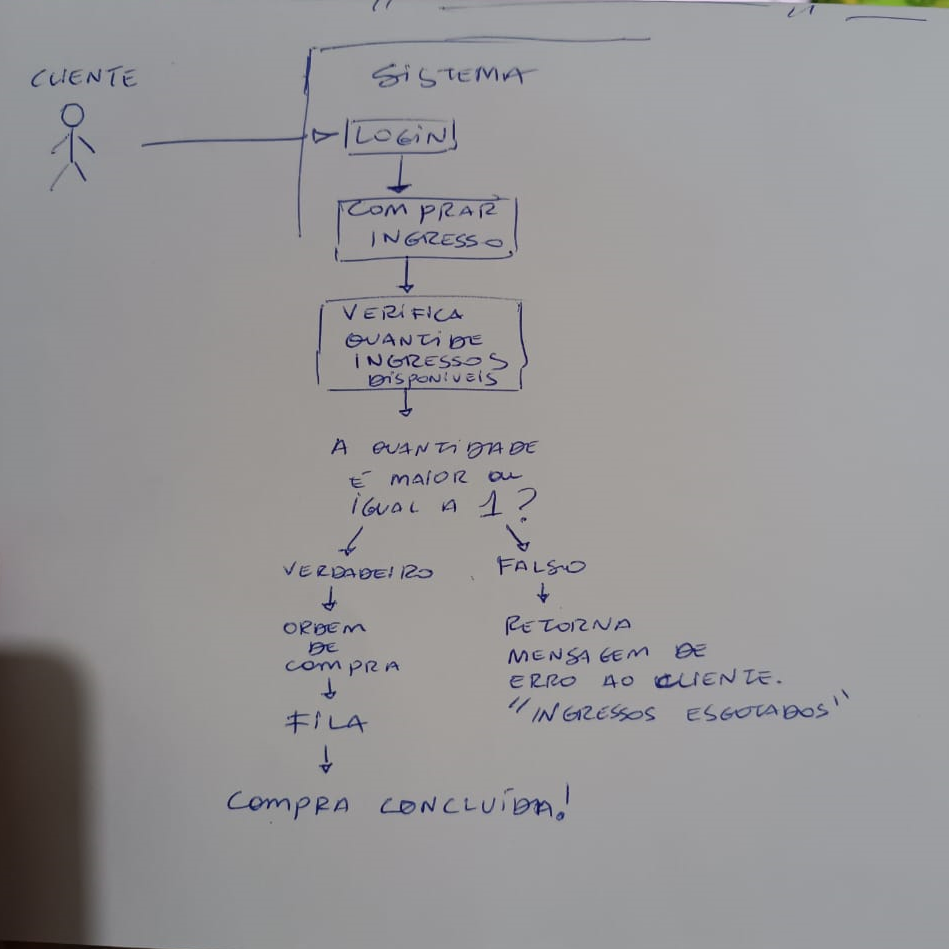 CLIENTE
SISTEMA
LOGIN
COMPRAR
INGRESSO
VERIFICA
QUANTIDE
INGRESSOS
DISPONÍVEIS
A QUANTIDADE
É MAIOR OU
IGUAL A 1?
VERDADEIRO
FALSO
ORDEM
DE
COMPRA
FILA
COMPRA CONCLUÍDA!
RETORNA
MENSAGEM DE
ERRO AO CLIENTE.
"INGRESSOS ESGOTADOS"